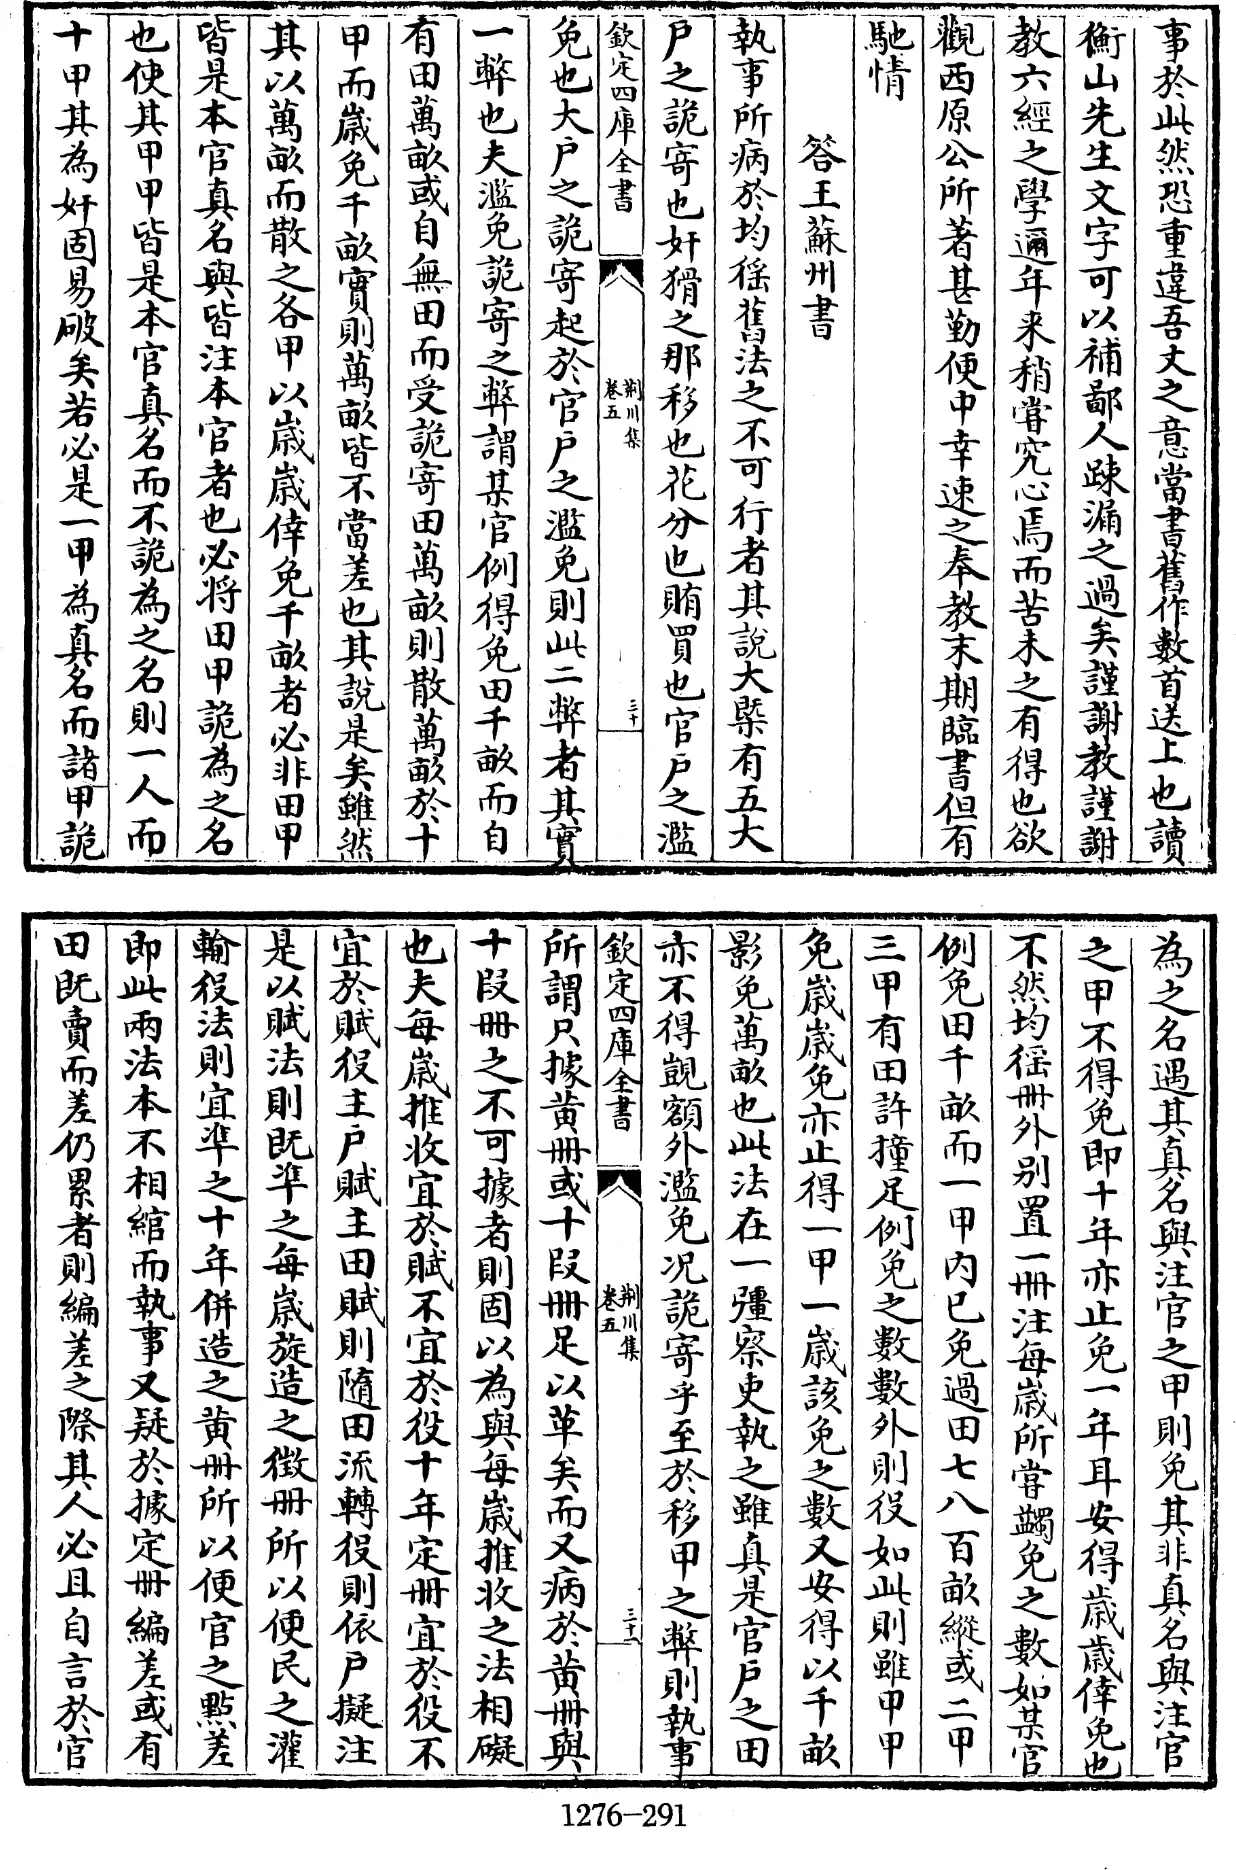 事於此然恐重違吾丈之意當書舊作數首送上也讀
衡山先生文字可以補鄙人踈漏之過矣謹謝教謹謝
教六經之學邇年来稍嘗究心焉而苦未之有得也欲
觀西原公所著甚勤便中幸速之奉教末期臨書但有
馳情
答王蘇州書
執事所病於均徭舊法之不可行者其說大槩有五大
戶之詭寄也奸猾之那移也花分也賄買也官戶之濫
欽定四庫全書
荆川集
卷五
三十
免也大戶之詭寄起於官戶之濫免則此二弊者其實
一弊也夫濫免詭寄之弊謂某官例得免田千畝而自
有田萬畝或自無田而受詭寄田萬畝則散萬畝於十
甲而歲免千畝實則萬畝皆不當差也其說是矣雖然
其以萬畝而散之各甲以歲歲倖免千畝者必非田甲
皆是本官真名與皆注本官者也必将田甲詭為之名
也使其甲甲皆是本官真名而不詭為之名則一人而
十甲其為奸固易破矣若必是一甲為真名而諸甲詭
為之名遇其真名與注官之甲則免其非真名與注官
之甲不得免即十年亦止免一年耳安得歲歲倖免也
不然均徭冊外别置一冊注每歲所嘗蠲免之數如某官
例免田千畝而一甲内已免過田七八百畝縱或二甲
三甲有田許撞足例免之數數外則役如此則雖甲甲
免歲歲免亦止得一甲一歲該免之數又安得以千畝
影免萬畝也此法在一彊察吏執之雖真是官戶之田
亦不得覬額外濫免况詭寄乎至於移甲之弊則執事
欽定四庫全書
荆川集
卷五
三十一
所謂只據黄冊或十段冊足以革矣而又病於黄冊與
十段冊之不可據者則固以為與每歲推收之法相礙
也夫每歲推收宜於賦不宜於役十年定冊宜於役不
宜於賦役主戶賦主田賦則隨田流轉役則依戶擬注
是以賦法則既凖之每歲旋造之徴冊所以便民之灌
輸役法則宜凖之十年併造之黄冊所以便官之㸃差
即此兩法本不相綰而執事又疑於據定冊編差或有
田既賣而差仍累者則編差之際其人必且自言於官
1276-291